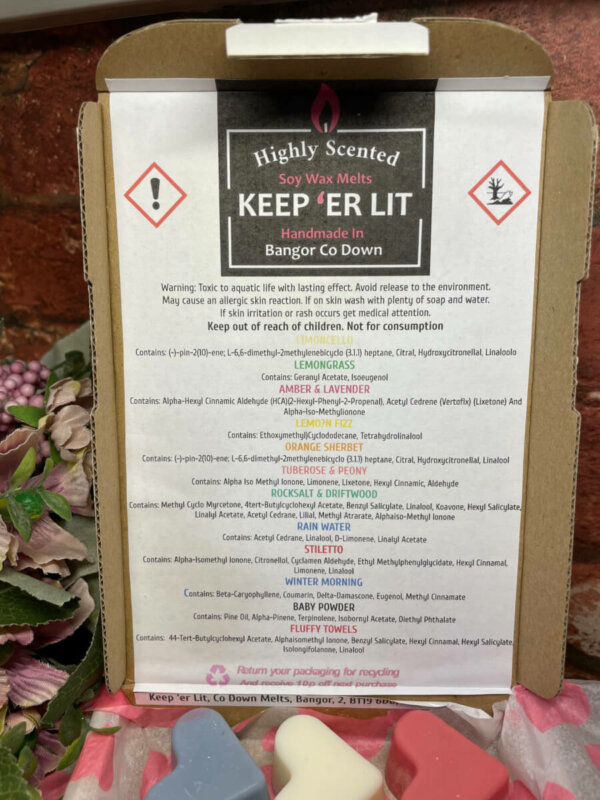 Highly Scented
Soy Wax Melts
KEEP 'ER LIT
Handmade In
Bangor Co Down
Warning: Toxic to aquatic life with lasting effect. Avoid release to the environment.
May cause an allergic skin reaction. If on skin wash with plenty of soap and water.
If skin irritation or rash occurs get medical attention.
Keep out of reach of children. Not for consumption
LIMONCELLO
Contains: (-)-pin-2(10)-ene; L-6,6-dimethyl-2methylenebicyclo (3.1.1) heptane, Citral, Hydroxycitronellal, Linaloolo
LEMONGRASS
Contains: Geranyl Acetate, Isoeugenol
AMBER & LAVENDER
Contains: Alpha-Hexyl Cinnamic Aldehyde (HCA)(2-Hexyl-Phenyl-2-Propenal), Acetyl Cedrene (Vertofix) (Lixetone) And
Alpha-Iso-Methylionone
LEMO?N FIZZ
Contains: Ethoxymethyl)Cyclododecane, Tetrahydrolinalool
ORANGE SHERBET
Contains: (-)-pin-2(10)-ene; L-6,6-dimethyl-2methylenebicyclo (3.1.1) heptane, Citral, Hydroxycitronellal, Linalool
TUBEROSE & PEONY
Contains: Alpha Iso Methyl Ionone, Limonene, Lixetone, Hexyl Cinnamic, Aldehyde
ROCKSALT & DRIFTWOOD
Contains: Methyl Cyclo Myrcetone, 4tert-Butylcyclohexyl Acetate, Benzyl Salicylate, Linalool, Koavone, Hexyl Salicylate,
Linalyl Acetate, Acetyl Cedrane, Lilial, Methyl Atrarate, Alphaiso-Methyl Ionone
RAIN WATER
Contains: Acetyl Cedrane, Linalool, D-Limonene, Linalyl Acetate
STILETTO
Contains: Alpha-Isomethyl Ionone, Citronellol, Cyclamen Aldehyde, Ethyl Methylphenylglycidate, Hexyl Cinnamal,
Limonene, Linalool
WINTER MORNING
Contains: Beta-Caryophyllene, Coumarin, Delta-Damascone, Eugenol, Methyl Cinnamate
BABY POWDER
Contains: Pine Oil, Alpha-Pinene, Terpinolene, Isobornyl Acetate, Diethyl Phthalate
FLUFFY TOWELS
Contains: 44-Tert-Butylcyclohexyl Acetate, Alphaisomethyl Ionone, Benzyl Salicylate, Hexyl Cinnamal, Hexyl Salicylate,
Isolongifolanone, Linalool
Return your packaging for recycling
And receive 10p off next purchase
Keep 'er Lit, Co Down Melts, Bangor, 2, BT19